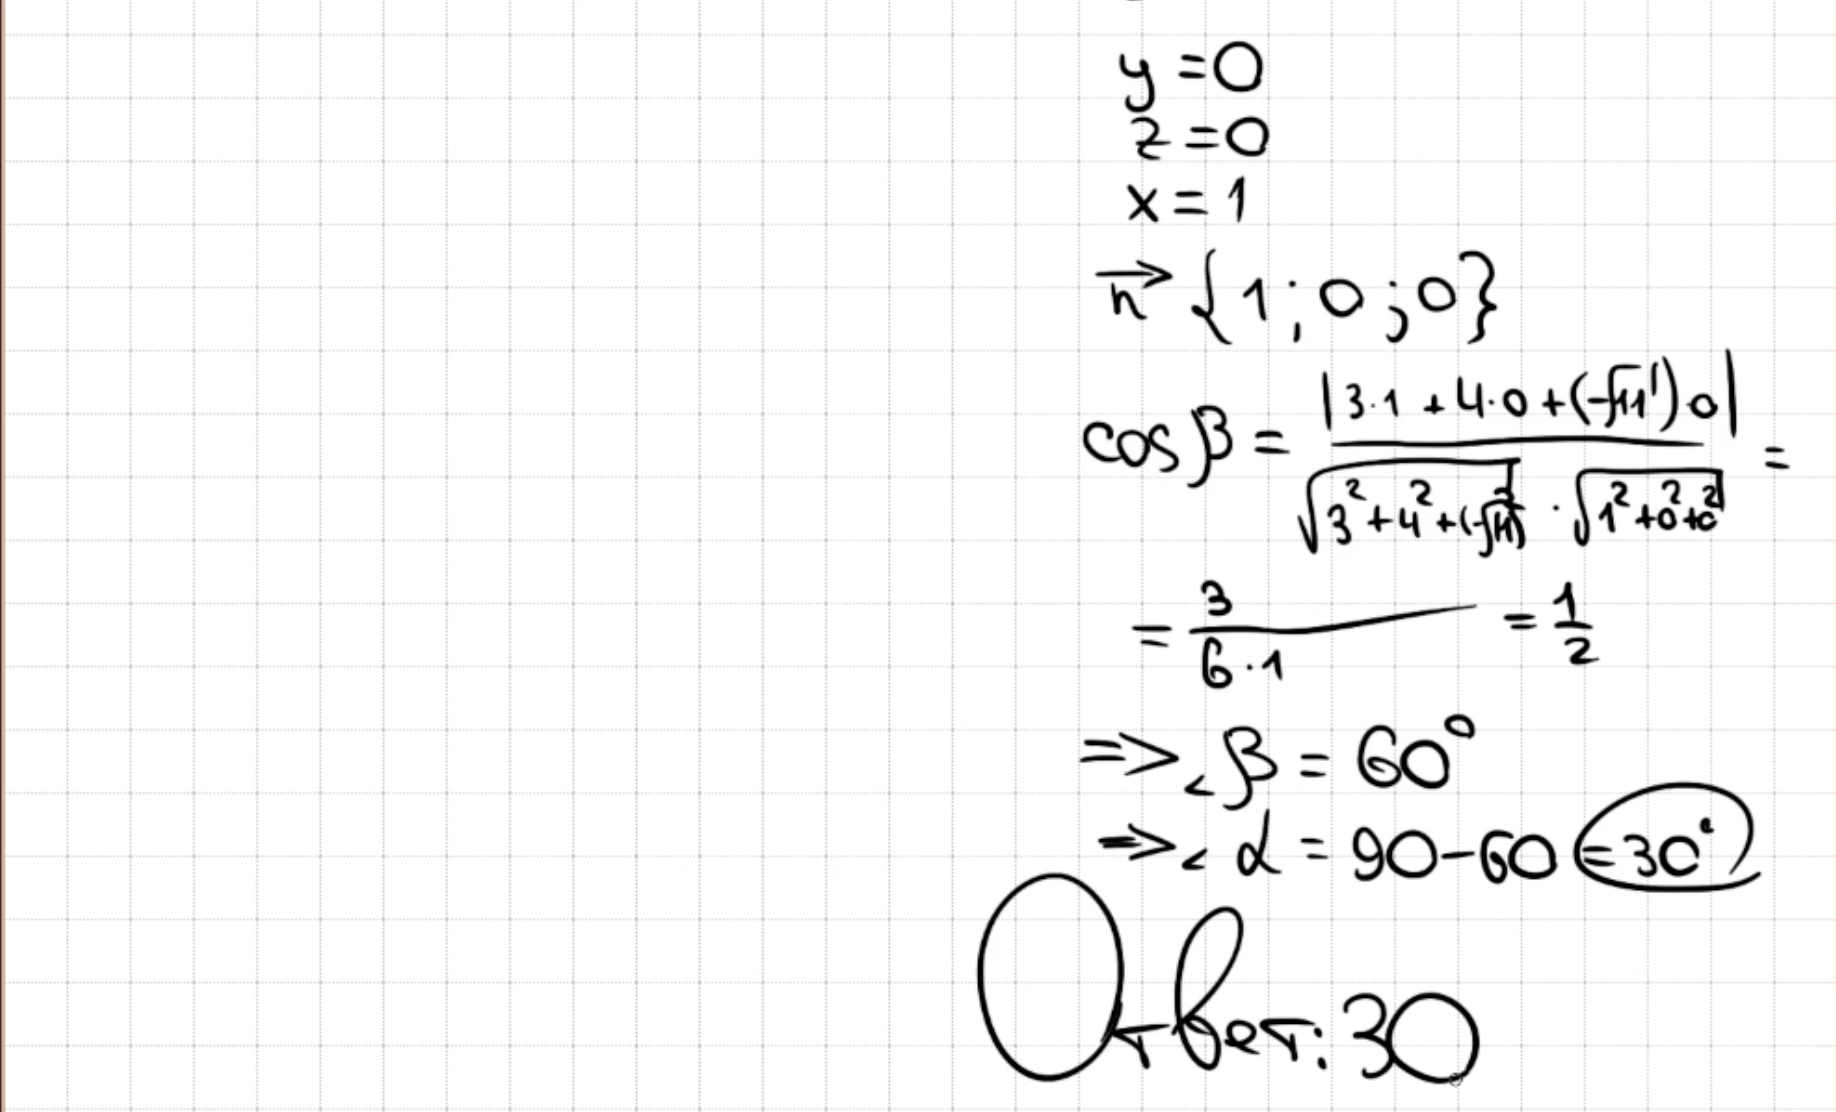 y = 0
z = 0
x = 1
n⃗ {1; 0; 0}
cos β = |3·1 + 4·0 + (-√11)·0| / √(3² + 4² + (-√11)²) · √(1² + 0² + 0²) =
= 3 / 6·1 = 1/2
=> ∠β = 60°
=> ∠α = 90 - 60 = 30°
Ответ: 30